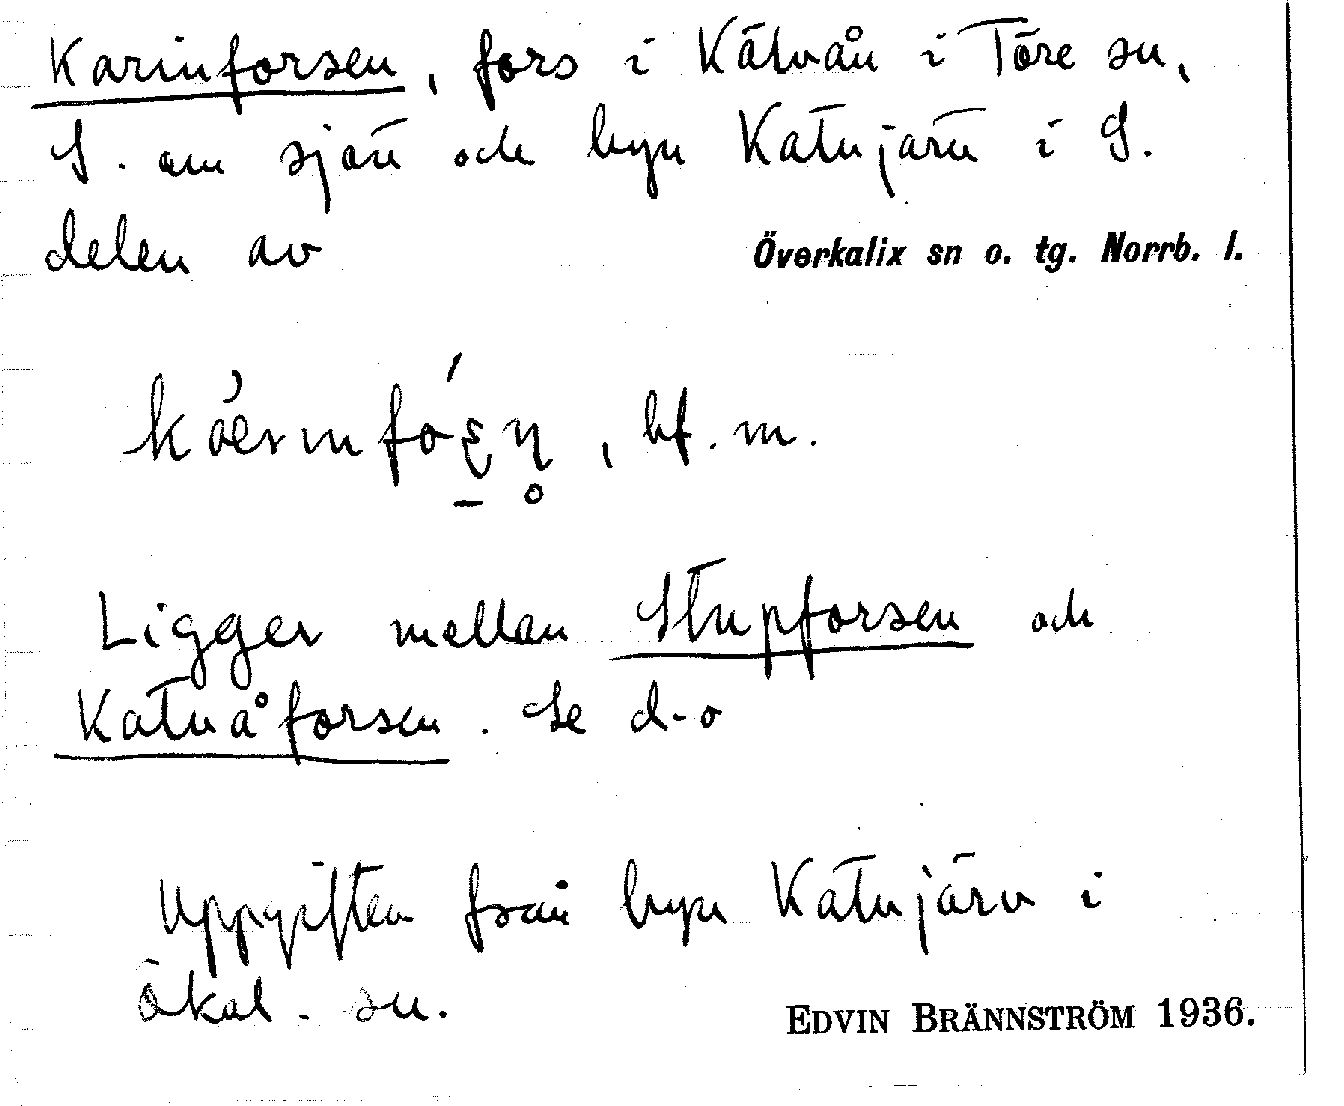 Karinforsen, fors i Kälvån i Töre sn,
S. om sjön och byn Kätujärv i S.
delen av Överkalix sn o. tg. Norrb. l.
bf. m.
Ligger mellan Stupforsen och
Katuåforsen. Se d-o
Uppgiften från byn Kätujärv i
Ökal. sn.
EDVIN BRÄNNSTRÖM 1936.